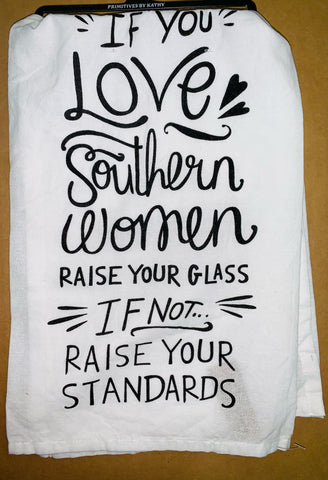 PRIMITIVES BY KATHY
IF YOU
LOVE
Southern
women
RAISE YOUR GLASS
IF NOT...
RAISE YOUR
STANDARDS